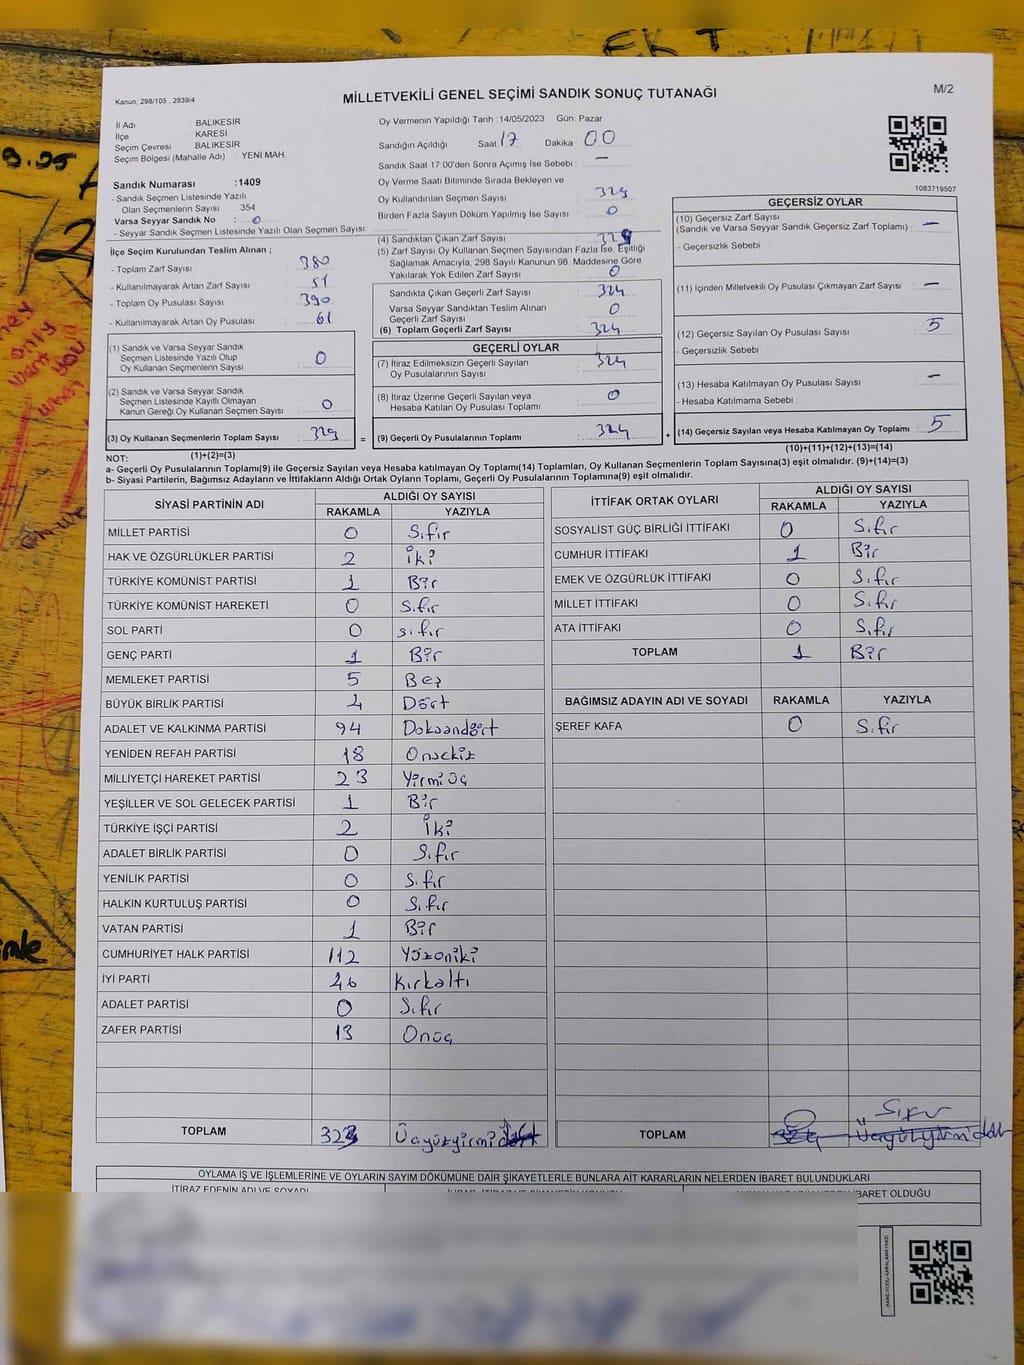 EKT
Kanun; 298/105 , 2839/4
MİLLETVEKİLİ GENEL SEÇİMİ SANDIK SONUÇ TUTANAĞI
M/2
İl Adı : BALIKESİR
İlçe : KARESİ
Seçim Çevresi : BALIKESİR
Seçim Bölgesi (Mahalle Adı) : YENİ MAH.
Sandık Numarası :1409
- Sandık Seçmen Listesinde Yazılı
Olan Seçmenlerin Sayısı : 354
Varsa Seyyar Sandık No : 0
- Seyyar Sandık Seçmen Listesinde Yazılı Olan Seçmen Sayısı :
Oy Vermenin Yapıldığı Tarih :14/05/2023 Gün: Pazar
Sandığın Açıldığı Saat 17 Dakika 00
Sandık Saat 17:00'den Sonra Açımış İse Sebebi : —
Oy Verme Saati Bitiminde Sırada Bekleyen ve
Oy Kullandırılan Seçmen Sayısı : 329
Birden Fazla Sayım Döküm Yapılmış İse Sayısı : 0
1083719507
İlçe Seçim Kurulundan Teslim Alınan ;
- Toplam Zarf Sayısı : 380
- Kullanılmayarak Artan Zarf Sayısı : 51
- Toplam Oy Pusulası Sayısı : 390
- Kullanılmayarak Artan Oy Pusulası : 61
(1) Sandık ve Varsa Seyyar Sandık
Seçmen Listesinde Yazılı Olup
Oy Kullanan Seçmenlerin Sayısı : 0
(2) Sandık ve Varsa Seyyar Sandık
Seçmen Listesinde Kayıtlı Olmayan
Kanun Gereği Oy Kullanan Seçmen Sayısı : 0
(3) Oy Kullanan Seçmenlerin Toplam Sayısı : 329
(1)+(2)=(3)
(4) Sandıktan Çıkan Zarf Sayısı : 329
(5) Zarf Sayısı Oy Kullanan Seçmen Sayısından Fazla İse, Eşitliği
Sağlamak Amacıyla, 298 Sayılı Kanunun 98. Maddesine Göre
Yakılarak Yok Edilen Zarf Sayısı : 0
Sandıkta Çıkan Geçerli Zarf Sayısı : 324
Varsa Seyyar Sandıktan Teslim Alınan
Geçerli Zarf Sayısı : 0
(6) Toplam Geçerli Zarf Sayısı : 324
GEÇERLİ OYLAR
(7) İtiraz Edilmeksizin Geçerli Sayılan
Oy Pusulalarının Sayısı : 324
(8) İtiraz Üzerine Geçerli Sayılan veya
Hesaba Katılan Oy Pusulası Toplamı : 0
= (9) Geçerli Oy Pusulalarının Toplamı : 324 +
GEÇERSİZ OYLAR
(10) Geçersiz Zarf Sayısı
(Sandık ve Varsa Seyyar Sandık Geçersiz Zarf Toplamı) : —
- Geçersizlik Sebebi :
(11) İçinden Milletvekili Oy Pusulası Çıkmayan Zarf Sayısı : —
(12) Geçersiz Sayılan Oy Pusulası Sayısı : 5
- Geçersizlik Sebebi :
(13) Hesaba Katılmayan Oy Pusulası Sayısı : —
- Hesaba Katılmama Sebebi :
(14) Geçersiz Sayılan veya Hesaba Katılmayan Oy Toplamı : 5
(10)+(11)+(12)+(13)=(14)
NOT:
a- Geçerli Oy Pusulalarının Toplamı(9) ile Geçersiz Sayılan veya Hesaba katılmayan Oy Toplamı(14) Toplamları, Oy Kullanan Seçmenlerin Toplam Sayısına(3) eşit olmalıdır. (9)+(14)=(3)
b- Siyasi Partilerin, Bağımsız Adayların ve İttifakların Aldığı Ortak Oyların Toplamı, Geçerli Oy Pusulalarının Toplamına(9) eşit olmalıdır.
SİYASİ PARTİNİN ADI ALDIĞI OY SAYISI
RAKAMLA YAZIYLA
MİLLET PARTİSİ 0 Sıfır
HAK VE ÖZGÜRLÜKLER PARTİSİ 2 İki
TÜRKİYE KOMÜNİST PARTİSİ 1 Bir
TÜRKİYE KOMÜNİST HAREKETİ 0 Sıfır
SOL PARTİ 0 sıfır
GENÇ PARTİ 1 Bir
MEMLEKET PARTİSİ 5 Beş
BÜYÜK BİRLİK PARTİSİ 4 Dört
ADALET VE KALKINMA PARTİSİ 94 Doksandört
YENİDEN REFAH PARTİSİ 18 Onsekiz
MİLLİYETÇİ HAREKET PARTİSİ 23 Yirmiüç
YEŞİLLER VE SOL GELECEK PARTİSİ 1 Bir
TÜRKİYE İŞÇİ PARTİSİ 2 İki
ADALET BİRLİK PARTİSİ 0 Sıfır
YENİLİK PARTİSİ 0 Sıfır
HALKIN KURTULUŞ PARTİSİ 0 Sıfır
VATAN PARTİSİ 1 Bir
CUMHURİYET HALK PARTİSİ 112 Yüzoniki
İYİ PARTİ 46 Kırkaltı
ADALET PARTİSİ 0 Sıfır
ZAFER PARTİSİ 13 Onüç
TOPLAM 323 Üçyüzyirmi
İTTİFAK ORTAK OYLARI ALDIĞI OY SAYISI
RAKAMLA YAZIYLA
SOSYALİST GÜÇ BİRLİĞİ İTTİFAKI 0 Sıfır
CUMHUR İTTİFAKI 1 Bir
EMEK VE ÖZGÜRLÜK İTTİFAKI 0 Sıfır
MİLLET İTTİFAKI 0 Sıfır
ATA İTTİFAKI 0 Sıfır
TOPLAM 1 Bir
BAĞIMSIZ ADAYIN ADI VE SOYADI RAKAMLA YAZIYLA
ŞEREF KAFA 0 Sıfır
Sıfır
TOPLAM 0
OYLAMA İŞ VE İŞLEMLERİNE VE OYLARIN SAYIM DÖKÜMÜNE DAİR ŞİKAYETLERLE BUNLARA AİT KARARLARIN NELERDEN İBARET BULUNDUKLARI
İTİRAZ EDENİN ADI VE SOYADI
İBARET OLDUĞU